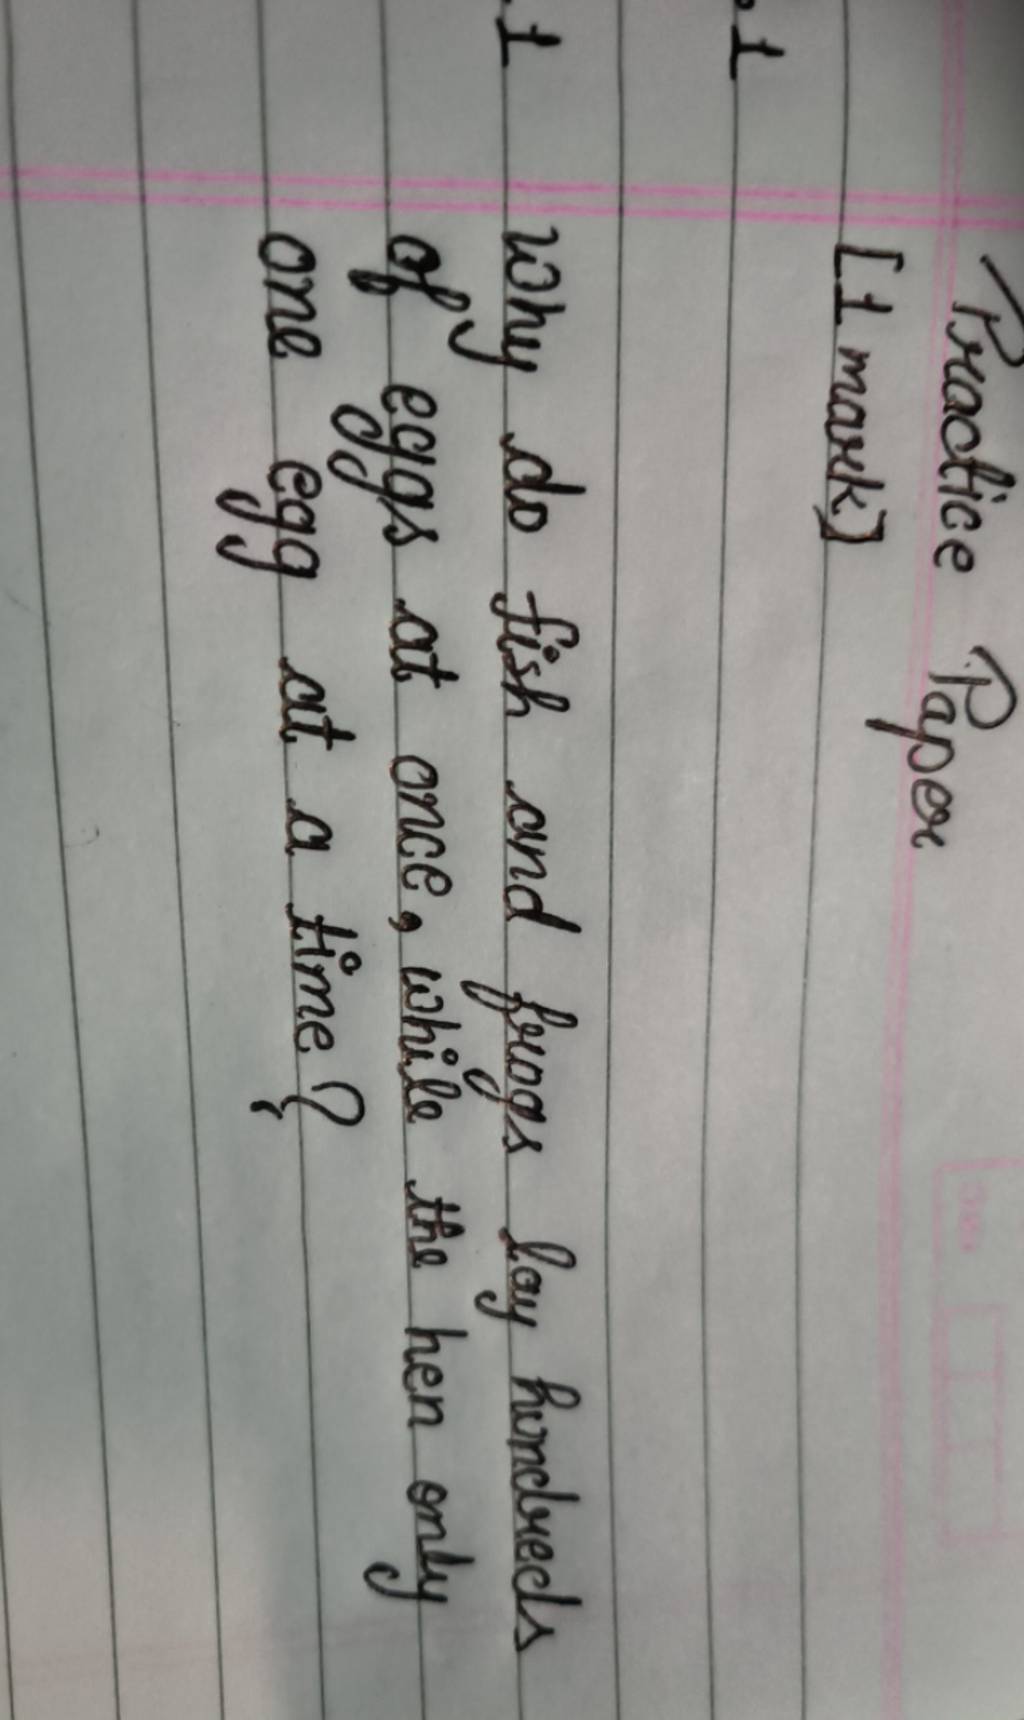 Practice Paper
[1 mark]
.1
.1 Why do fish and frogs lay hundreds
of eggs at once, while the hen only
one egg at a time?